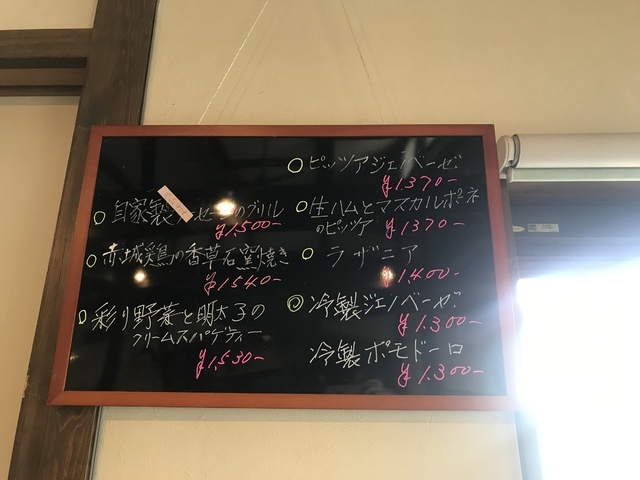 自家製ソーセージのグリル
¥1,500-
赤城鶏の香草石窯焼き
¥1540-
彩り野菜と明太子の
クリームスパゲティー
¥1,530-
ピッツアジェノベーゼ
¥1370-
生ハムとマスカルポーネ
のピッツア ¥1370-
ラザニア
¥1400-
冷製ジェノベーゼ
¥1.300-
冷製ポモドーロ
¥1.300-